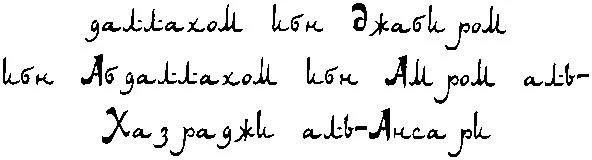 даллахом ибн Джаби ром
ибн Абдаллахом ибн Ам ром аль-
Хаз раджи аль-Анса ри